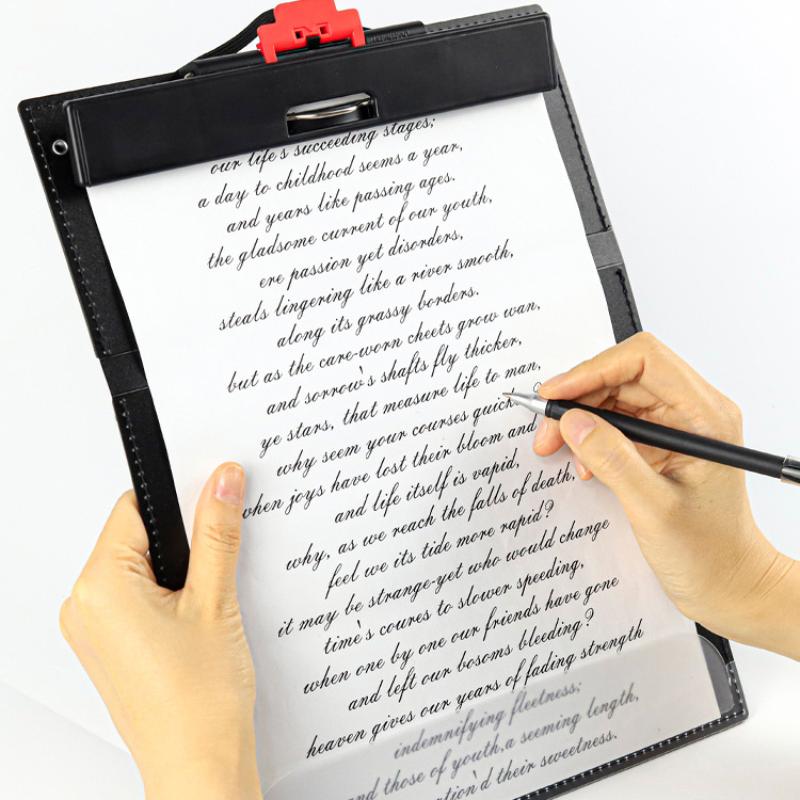 our life's succeeding stages;
a day to childhood seems a year,
and years like passing ages.
the gladsome current of our youth,
ere passion yet disorders,
steals lingering like a river smooth,
along its grassy borders.
but as the care-worn cheets grow wan,
and sorrow's shafts fly thicker,
ye stars, that measure life to man,
why seem your courses
when joys have lost their bloom and
and life itself is vapid,
why, as we reach the falls of death,
feel we its tide more rapid?
it may be strange-yet who would change
time's coures to slower speeding,
when one by one our friends have gone
and left our bosoms bleeding?
heaven gives our years of fading strength
indemnifying fleetness;
and those of youth,a seeming length,
their sweetness.